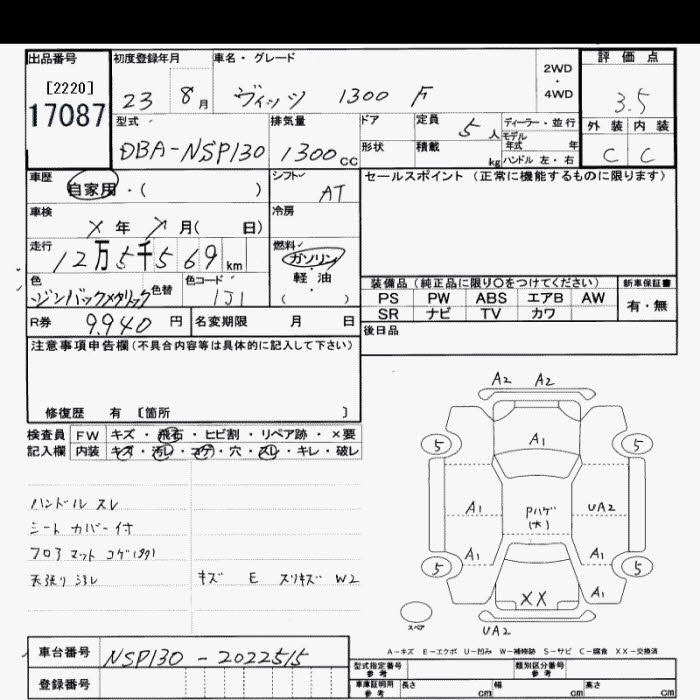 出品番号 初度登録年月 車名・グレード 2WD・4WD 評価点
[2220]
17087 23 8月 ヴィッツ 1300 F 3.5
型式 排気量 ドア 定員 5人 ディーラー・並行 外装 内装
モデル年式 年
DBA-NSP130 1300cc 形状 積載 kg ハンドル 左・右 C C
車歴 自家用・( ) シフト AT セールスポイント (正常に機能するものに限ります)
車検 X年 X月( 日) 冷房
走行 12万5千569km 燃料 ガソリン
軽油
( )
色 色替 色コード 1J1 装備品(純正品に限り○をつけてください) 新車保証書
PS PW ABS エアB AW 有・無
SR ナビ TV カワ
R券 9,940円 名変期限 月 日 後日品
注意事項申告欄(不具合内容等は具体的に記入して下さい)
修復歴 有 〔箇所 〕
検査員 FW キズ・飛石・ヒビ割・リペア跡・×要
記入欄 内装 キズ・汚レ・コゲ・穴・スレ・キレ・破レ
ハンドル スレ
シート カバー付
フロアマット コゲ
天張り ヨゴレ キズ E スリキズ W2
A2 A2
A1
5 5
A1 Pハゲ(大) UA2
A1 A1
5 5
XX A1
スペア UA2
A-キズ E-エクボ U-凹み W-補修跡 S-サビ C-腐食 XX-交換済
車台番号 NSP130-2022515
型式指定番号 参考 類別区分番号 参考
登録番号 車庫証明用 参考 長さ cm 幅 cm 高さ cm